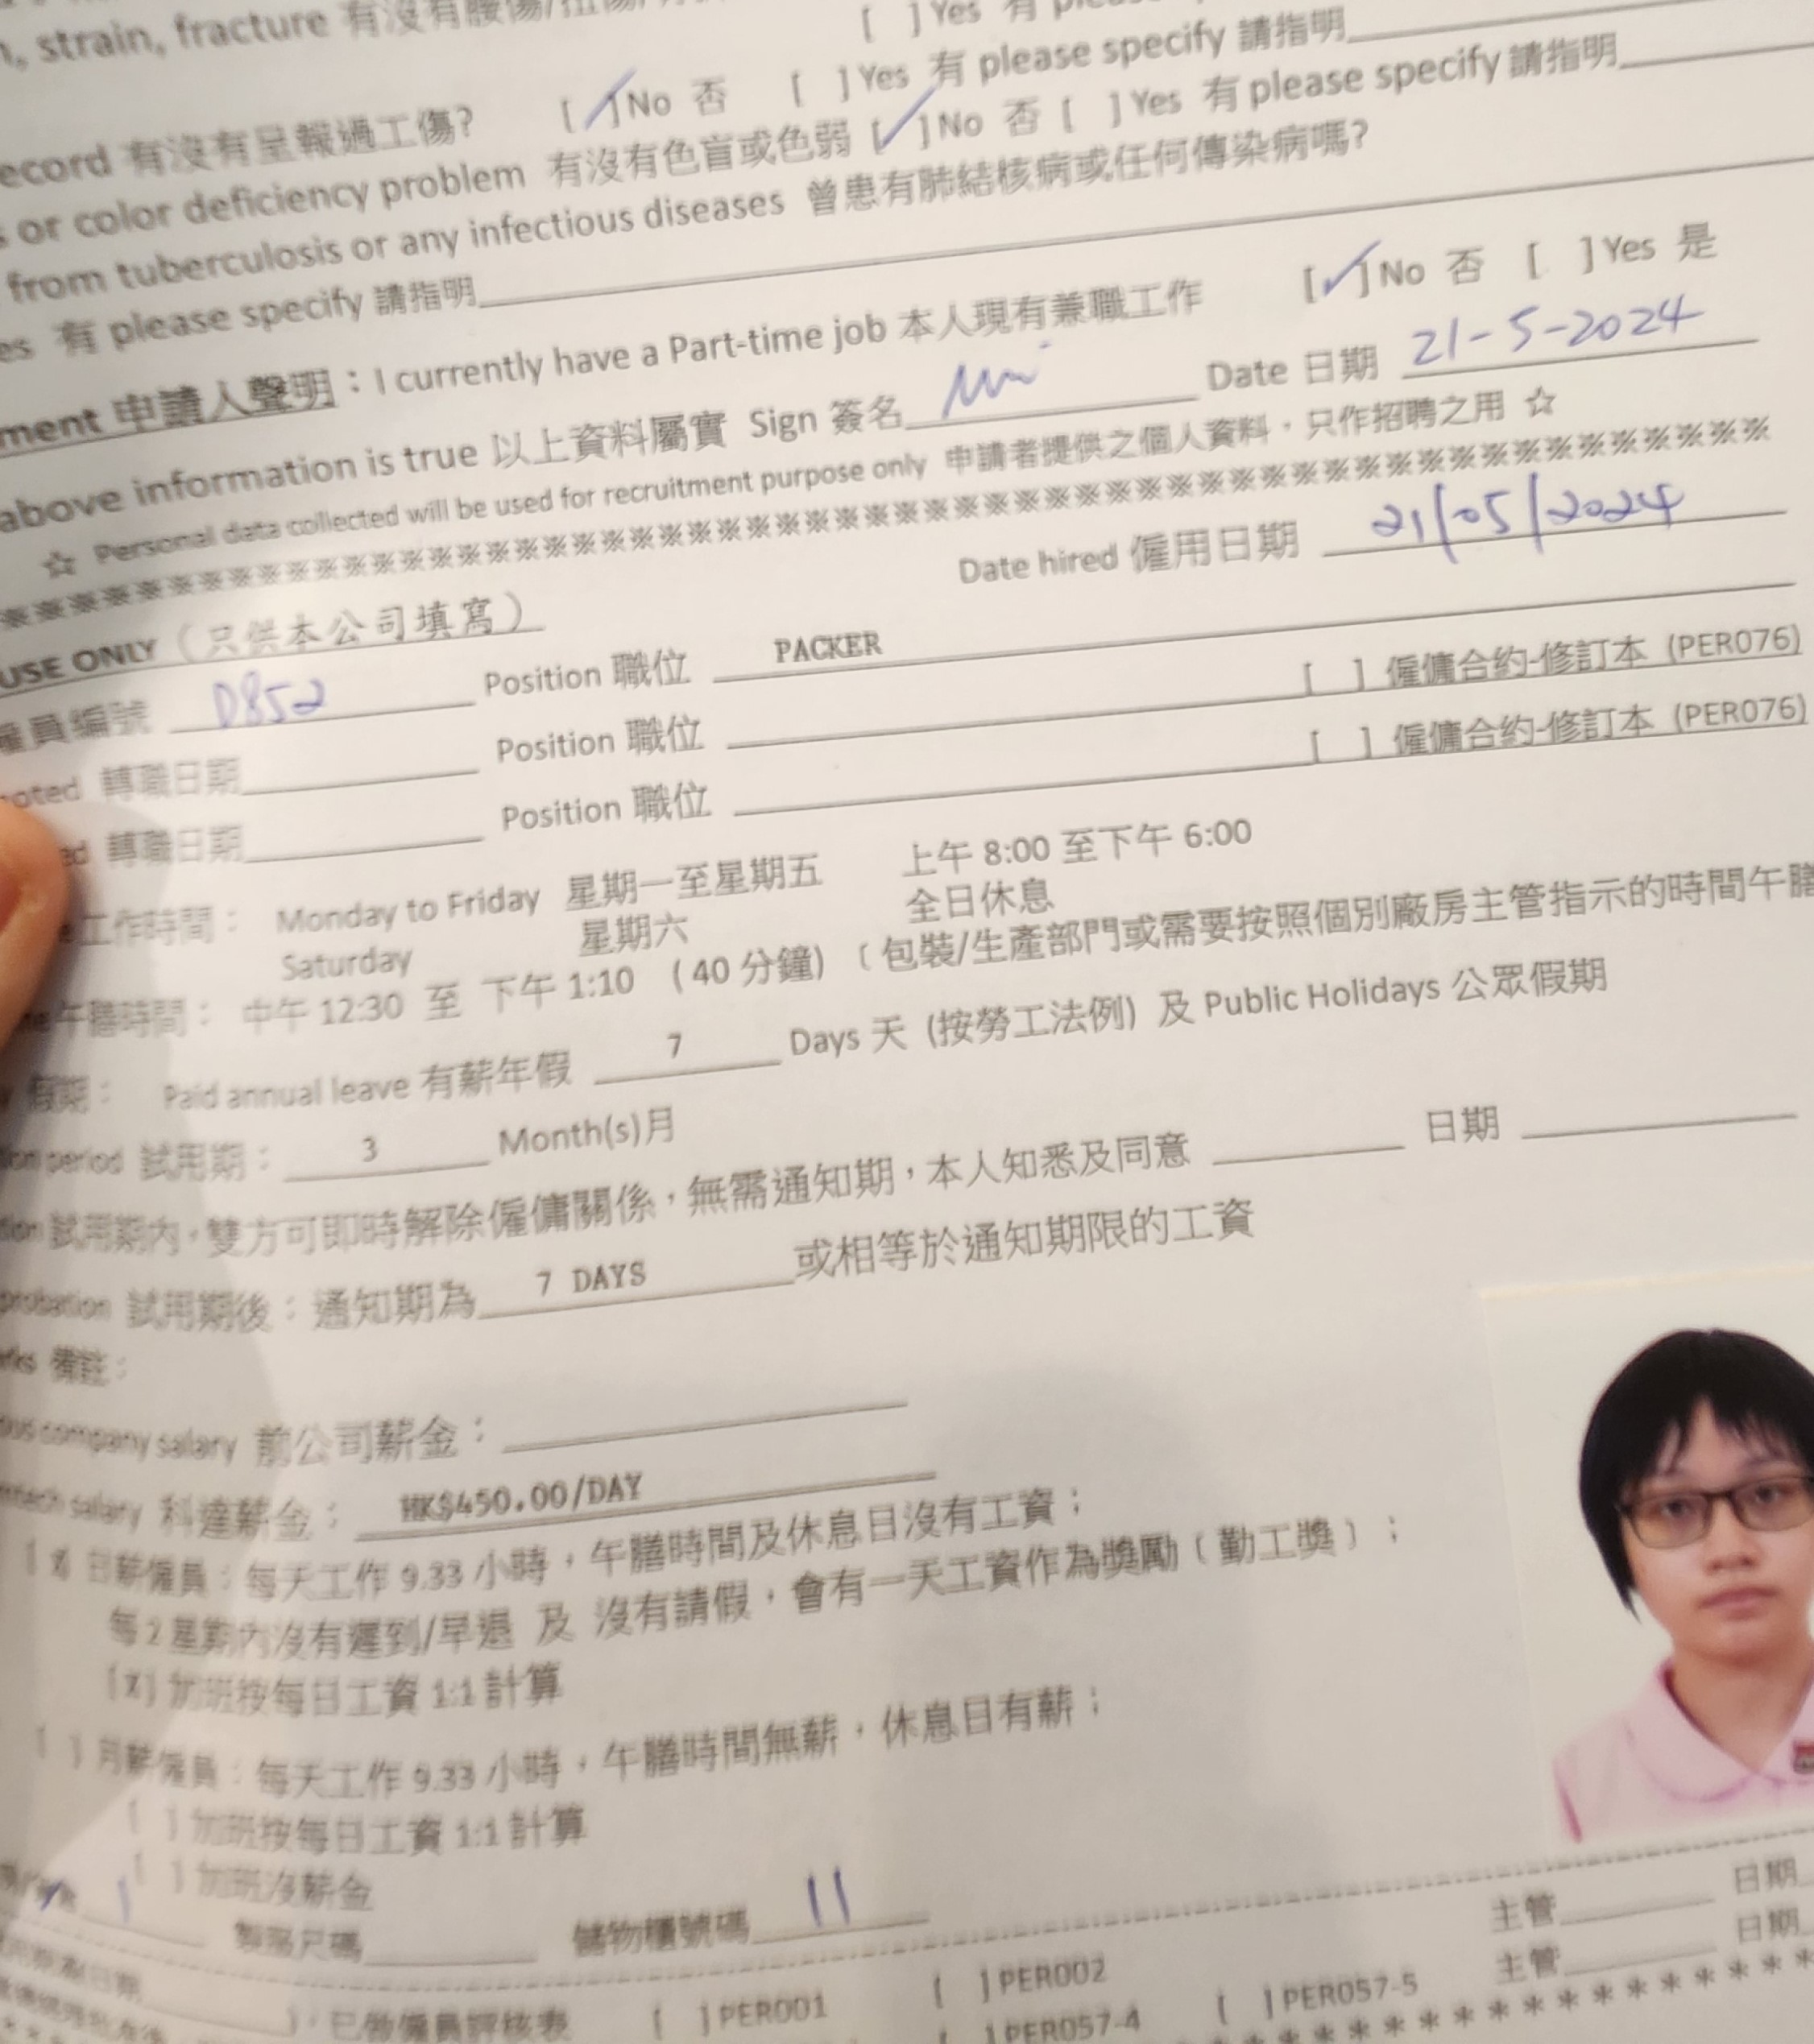 strain, fracture 有沒有腰傷/扭傷/ [ ] Yes 有
[✓] No 否 [ ] Yes 有 please specify 請指明
有沒有呈報過工傷?
or color deficiency problem 有沒有色盲或色弱 [✓] No 否 [ ] Yes 有 please specify 請指明
from tuberculosis or any infectious diseases 曾患有肺結核病或任何傳染病嗎?
有 please specify 請指明
申請人聲明：I currently have a Part-time job 本人現有兼職工作 [✓] No 否 [ ] Yes 是
above information is true 以上資料屬實 Sign 簽名 Date 日期 21-5-2024
☆ Personal data collected will be used for recruitment purpose only 申請者提供之個人資料，只作招聘之用 ☆
USE ONLY（只供本公司填寫） Date hired 僱用日期 21/05/2024
僱員編號 D852 Position 職位 PACKER
轉職日期 Position 職位 [ ] 僱傭合約-修訂本 (PER076)
轉職日期 Position 職位 [ ] 僱傭合約-修訂本 (PER076)
工作時間： Monday to Friday 星期一至星期五 上午 8:00 至下午 6:00
Saturday 星期六 全日休息
午膳時間： 中午 12:30 至 下午 1:10 (40 分鐘) (包裝/生產部門或需要按照個別廠房主管指示的時間午膳
假期： Paid annual leave 有薪年假 7 Days 天 (按勞工法例) 及 Public Holidays 公眾假期
period 試用期： 3 Month(s)月
試用期內，雙方可即時解除僱傭關係，無需通知期，本人知悉及同意 日期
probation 試用期後：通知期為 7 DAYS 或相等於通知期限的工資
備註：
company salary 前公司薪金：
salary 科達薪金： HK$450.00/DAY
[X] 日薪僱員：每天工作 9.33 小時，午膳時間及休息日沒有工資；
每 2 星期內沒有遲到/早退 及 沒有請假，會有一天工資作為獎勵（勤工獎）；
[X] 加班按每日工資 1:1 計算
[ ] 月薪僱員：每天工作 9.33 小時，午膳時間無薪，休息日有薪；
[ ] 加班按每日工資 1:1 計算
[ ] 加班沒薪金
儲物櫃號碼 11
主管 日期
主管 日期
已做僱員評核表 [ ] PER001 [ ] PER002
[ ] PER057-4 [ ] PER057-5